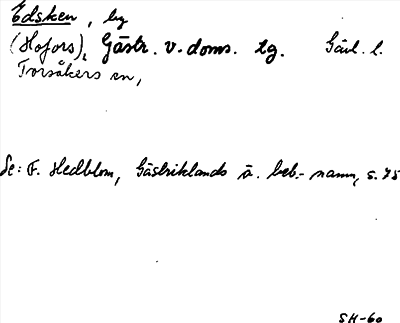 Edsken, by
(Hofors), Gästr. v. doms. tg. Gävl. l.
Torsåkers sn,
Se: F. Hedblom, Gästriklands ä. beb.- namn, s. 75
SH-60